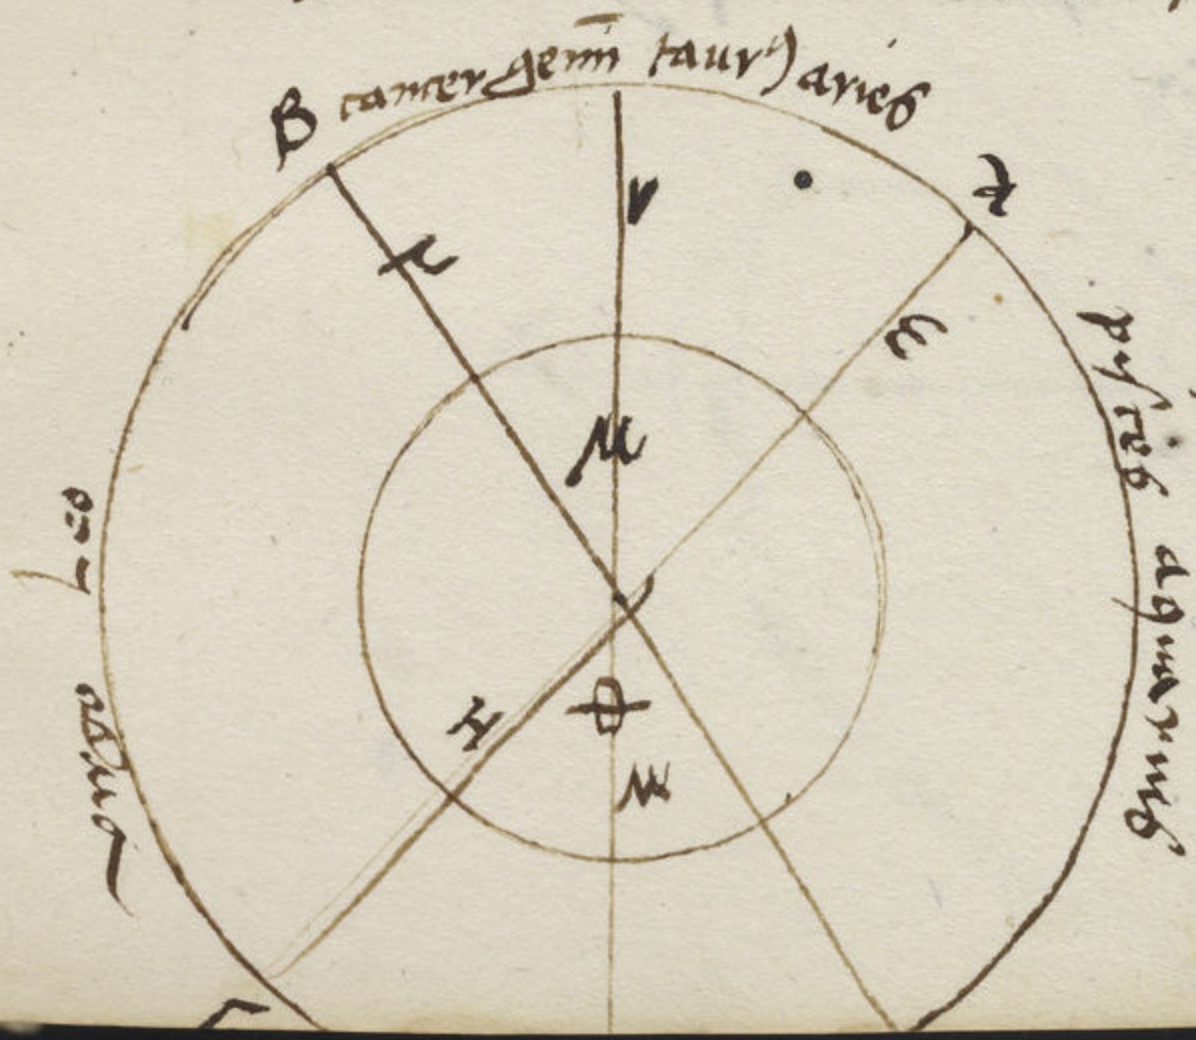 β cancer gemīī taurꝰ aries
pisces
aquarius
leo
virgo
ε
M
H
Φ
Γ